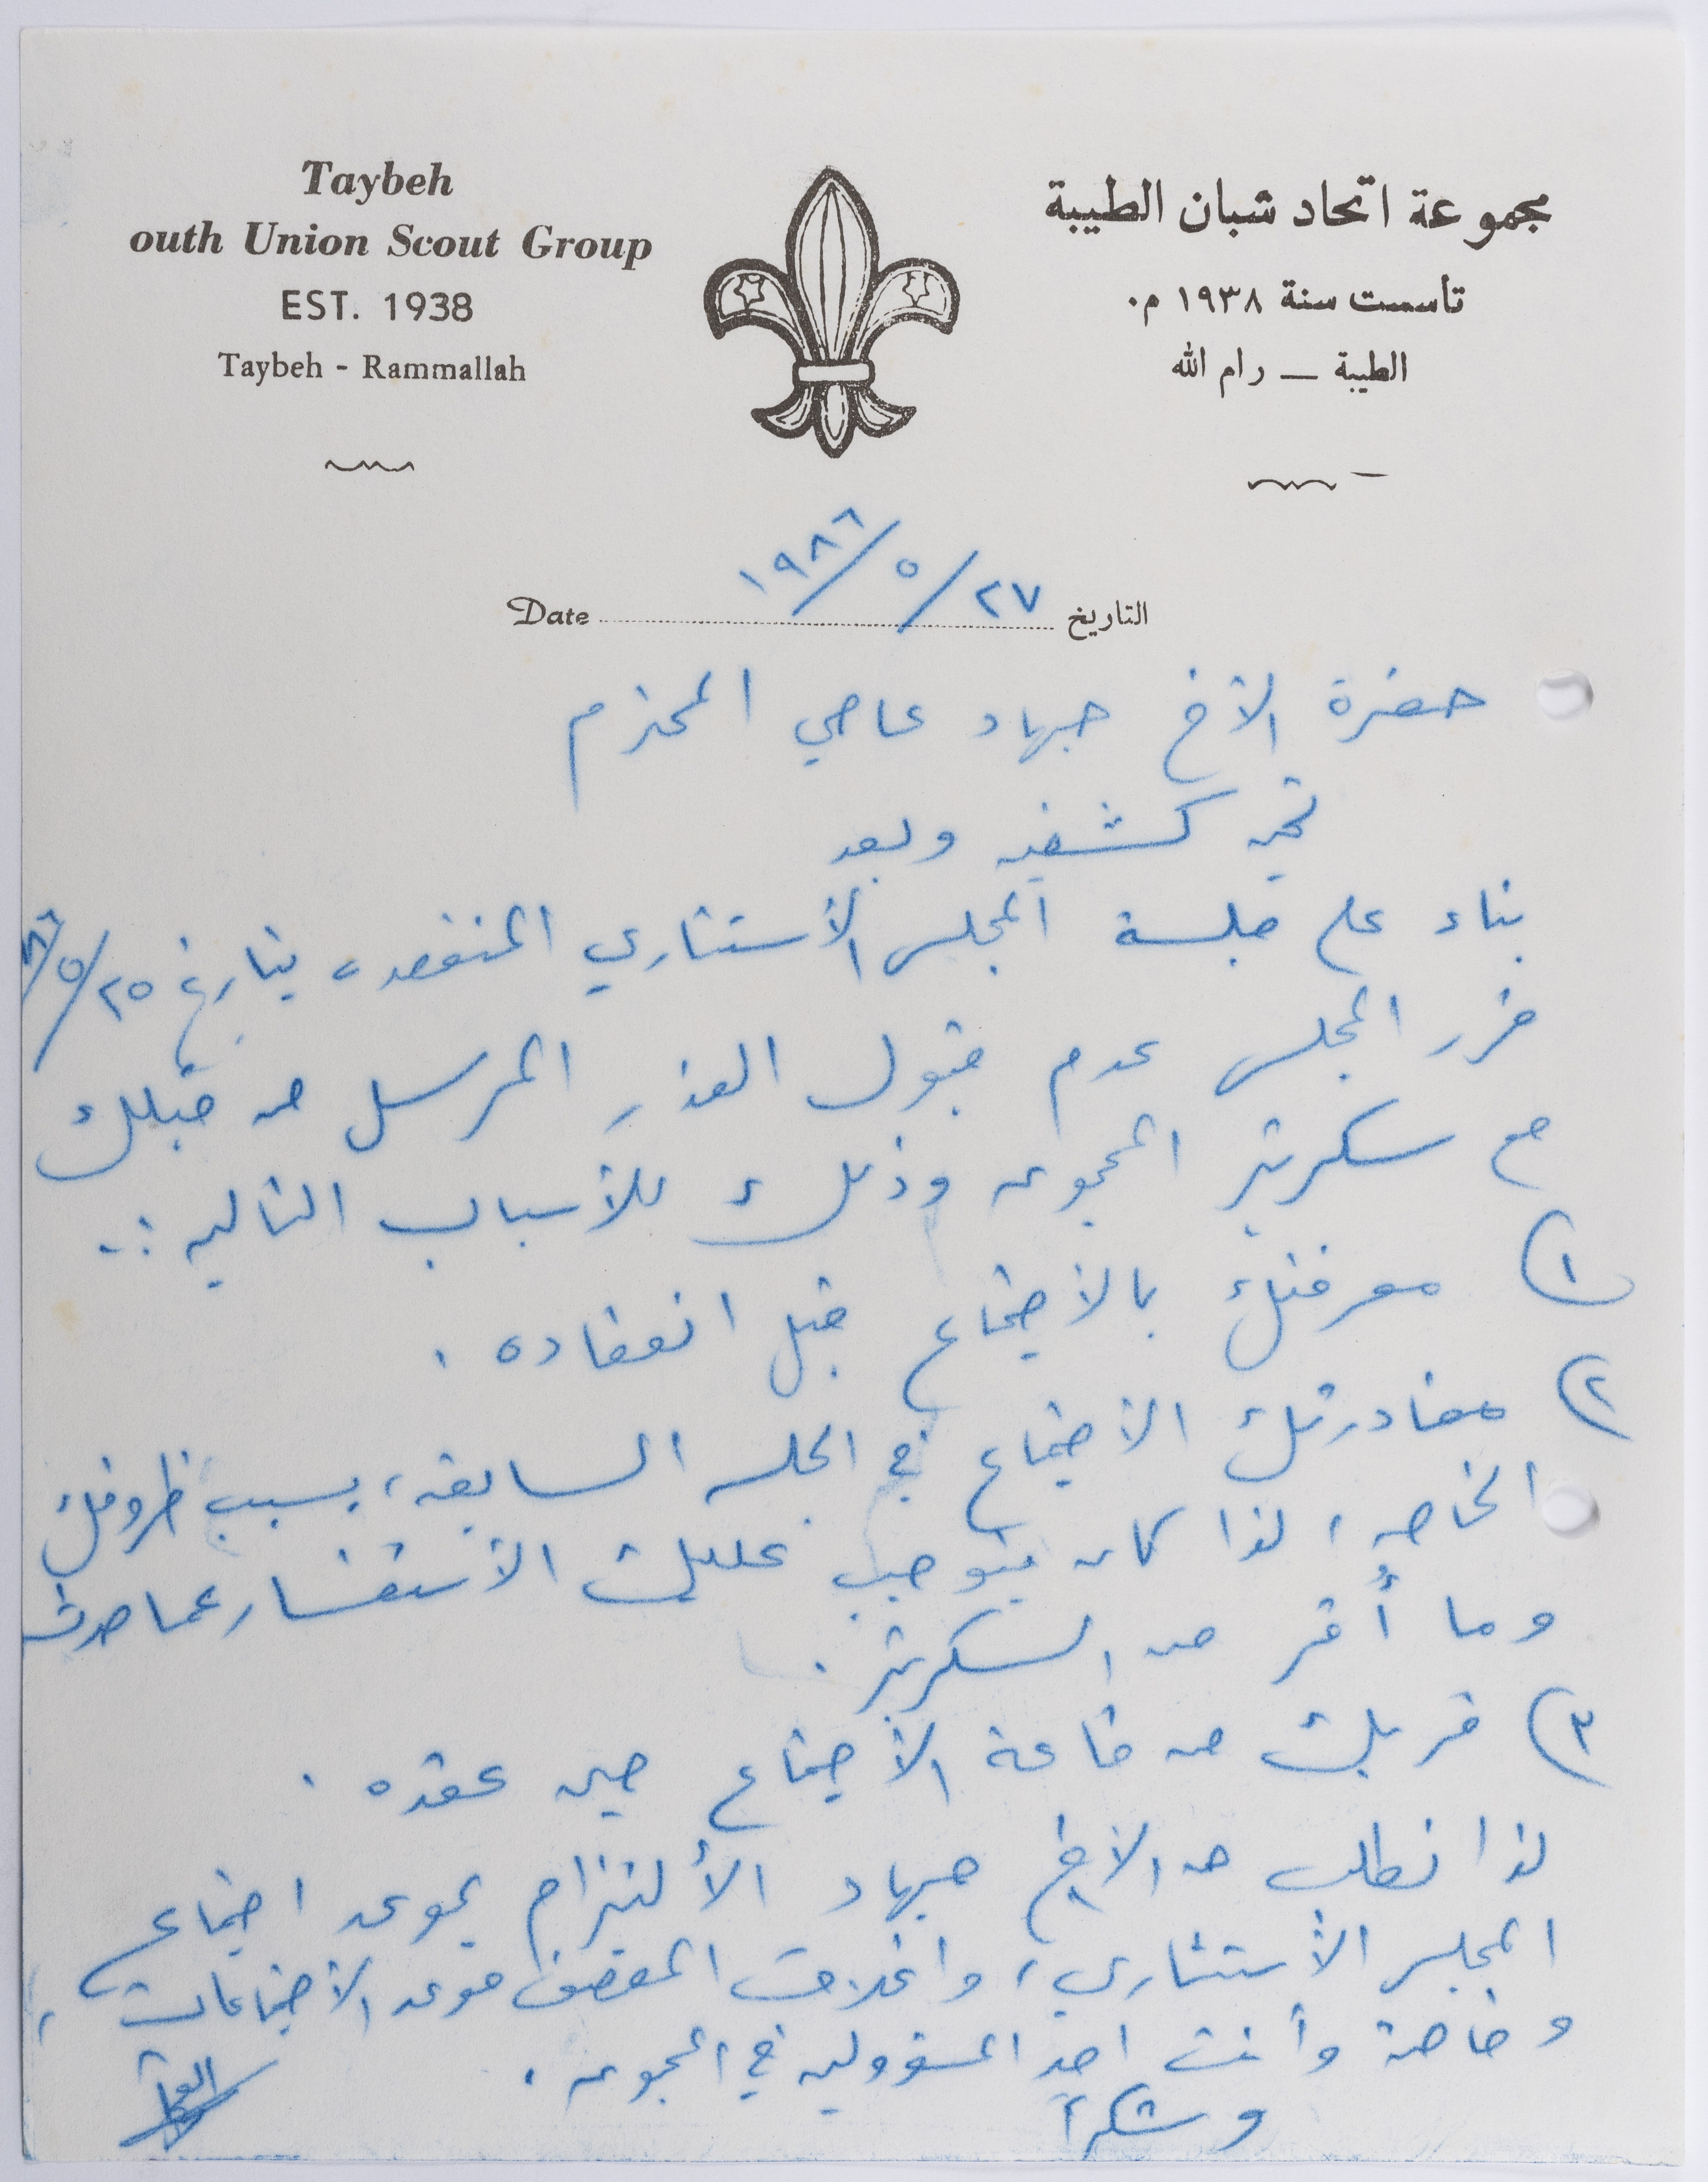 Taybeh
outh Union Scout Group
EST. 1938
Taybeh - Rammallah
مجموعة اتحاد شبان الطيبة
تأسست سنة ١٩٣٨ م.
الطيبة — رام الله
Date التاريخ ٢٧/٥/١٩٨٦
حضرة الأخ جهاد عاصي المحترم
تحيه كشفيه وبعد
بناء على جلسة المجلس الأستشاري المنعقده بتاريخ ٢٥/٥/٨٦
قرر المجلس عدم قبول العذر المرسل من قبلك
مع سكرتير المجموعه وذلك للأسباب التاليه :.
١) معرفتك بالأجتماع قبل انعقاده .
٢) مغادرتك الأجتماع في الجلسه السابقه، بسبب ظروفك
الخاصه، لذا كان يتوجب عليك الأستفسار عما حدث
وما أُقر من السكرتير .
٣) قربك من قاعة الأجتماع حين عقده .
لذا نطلب من الأخ جهاد الألتزام بموعد اجتماع
المجلس الأستشاري، واغلاق المقصف موعد الأجتماعات،
وخاصة وأنت احد المسؤولين في المجموعه .
وشكراً